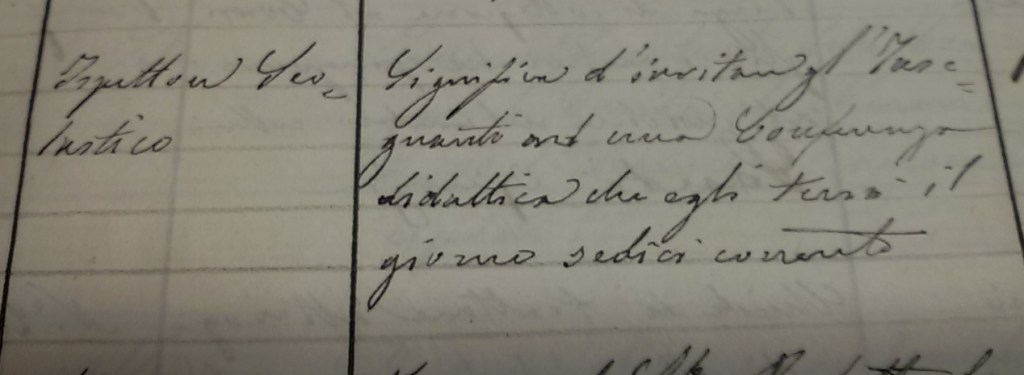 Ispettore Sco=
lastico
Significa d'invitare gl'Inse=
gnanti ad una Conferenza
didattica che egli terrà il
giorno sedici corrente